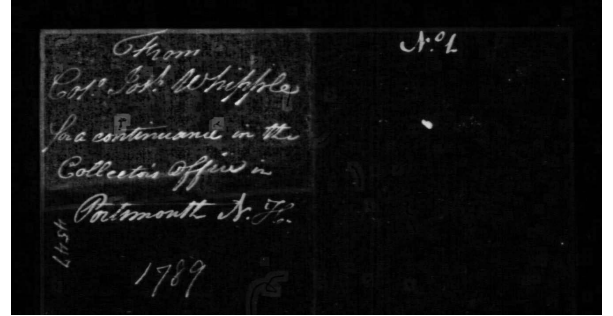 From
Colº. Josh. Whipple
for a continuance in the
Collector's Office in
Portsmouth N. H.
1789
Nº. 1